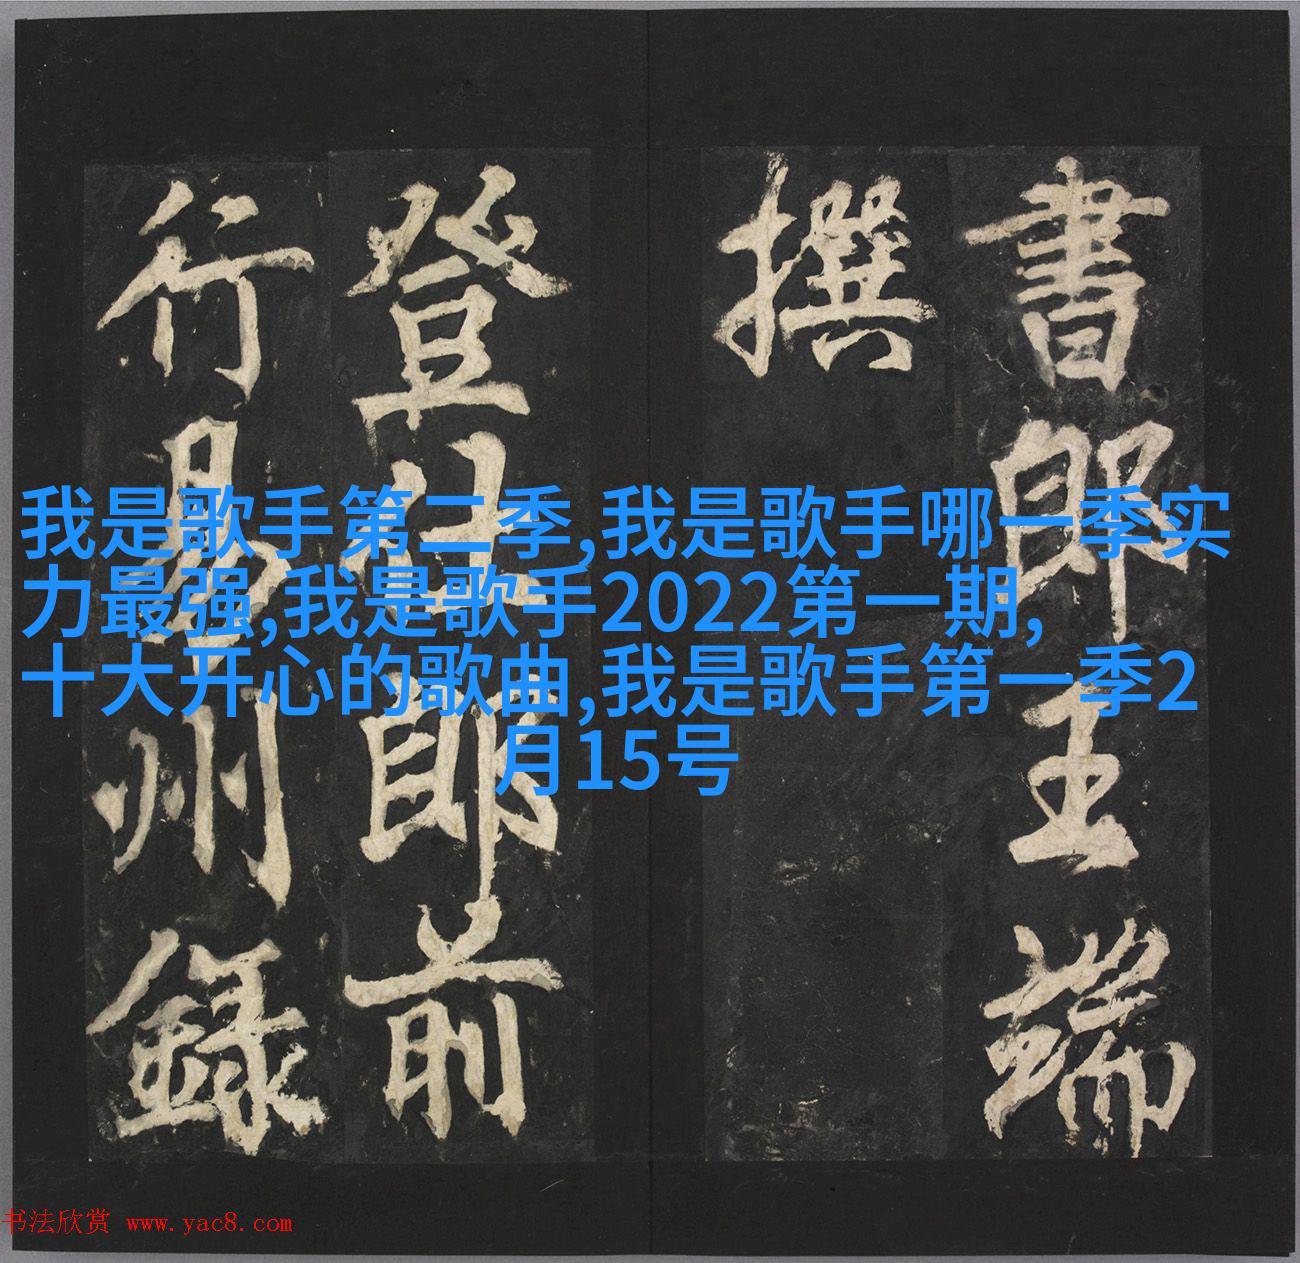 書郎王端
撰
登仕郎前
行易州錄
我是歌手第二季,我是歌手哪一季实
力最强,我是歌手2022第一期,
十大开心的歌曲,我是歌手第一季2
月15号
书法欣赏 www.yac8.com